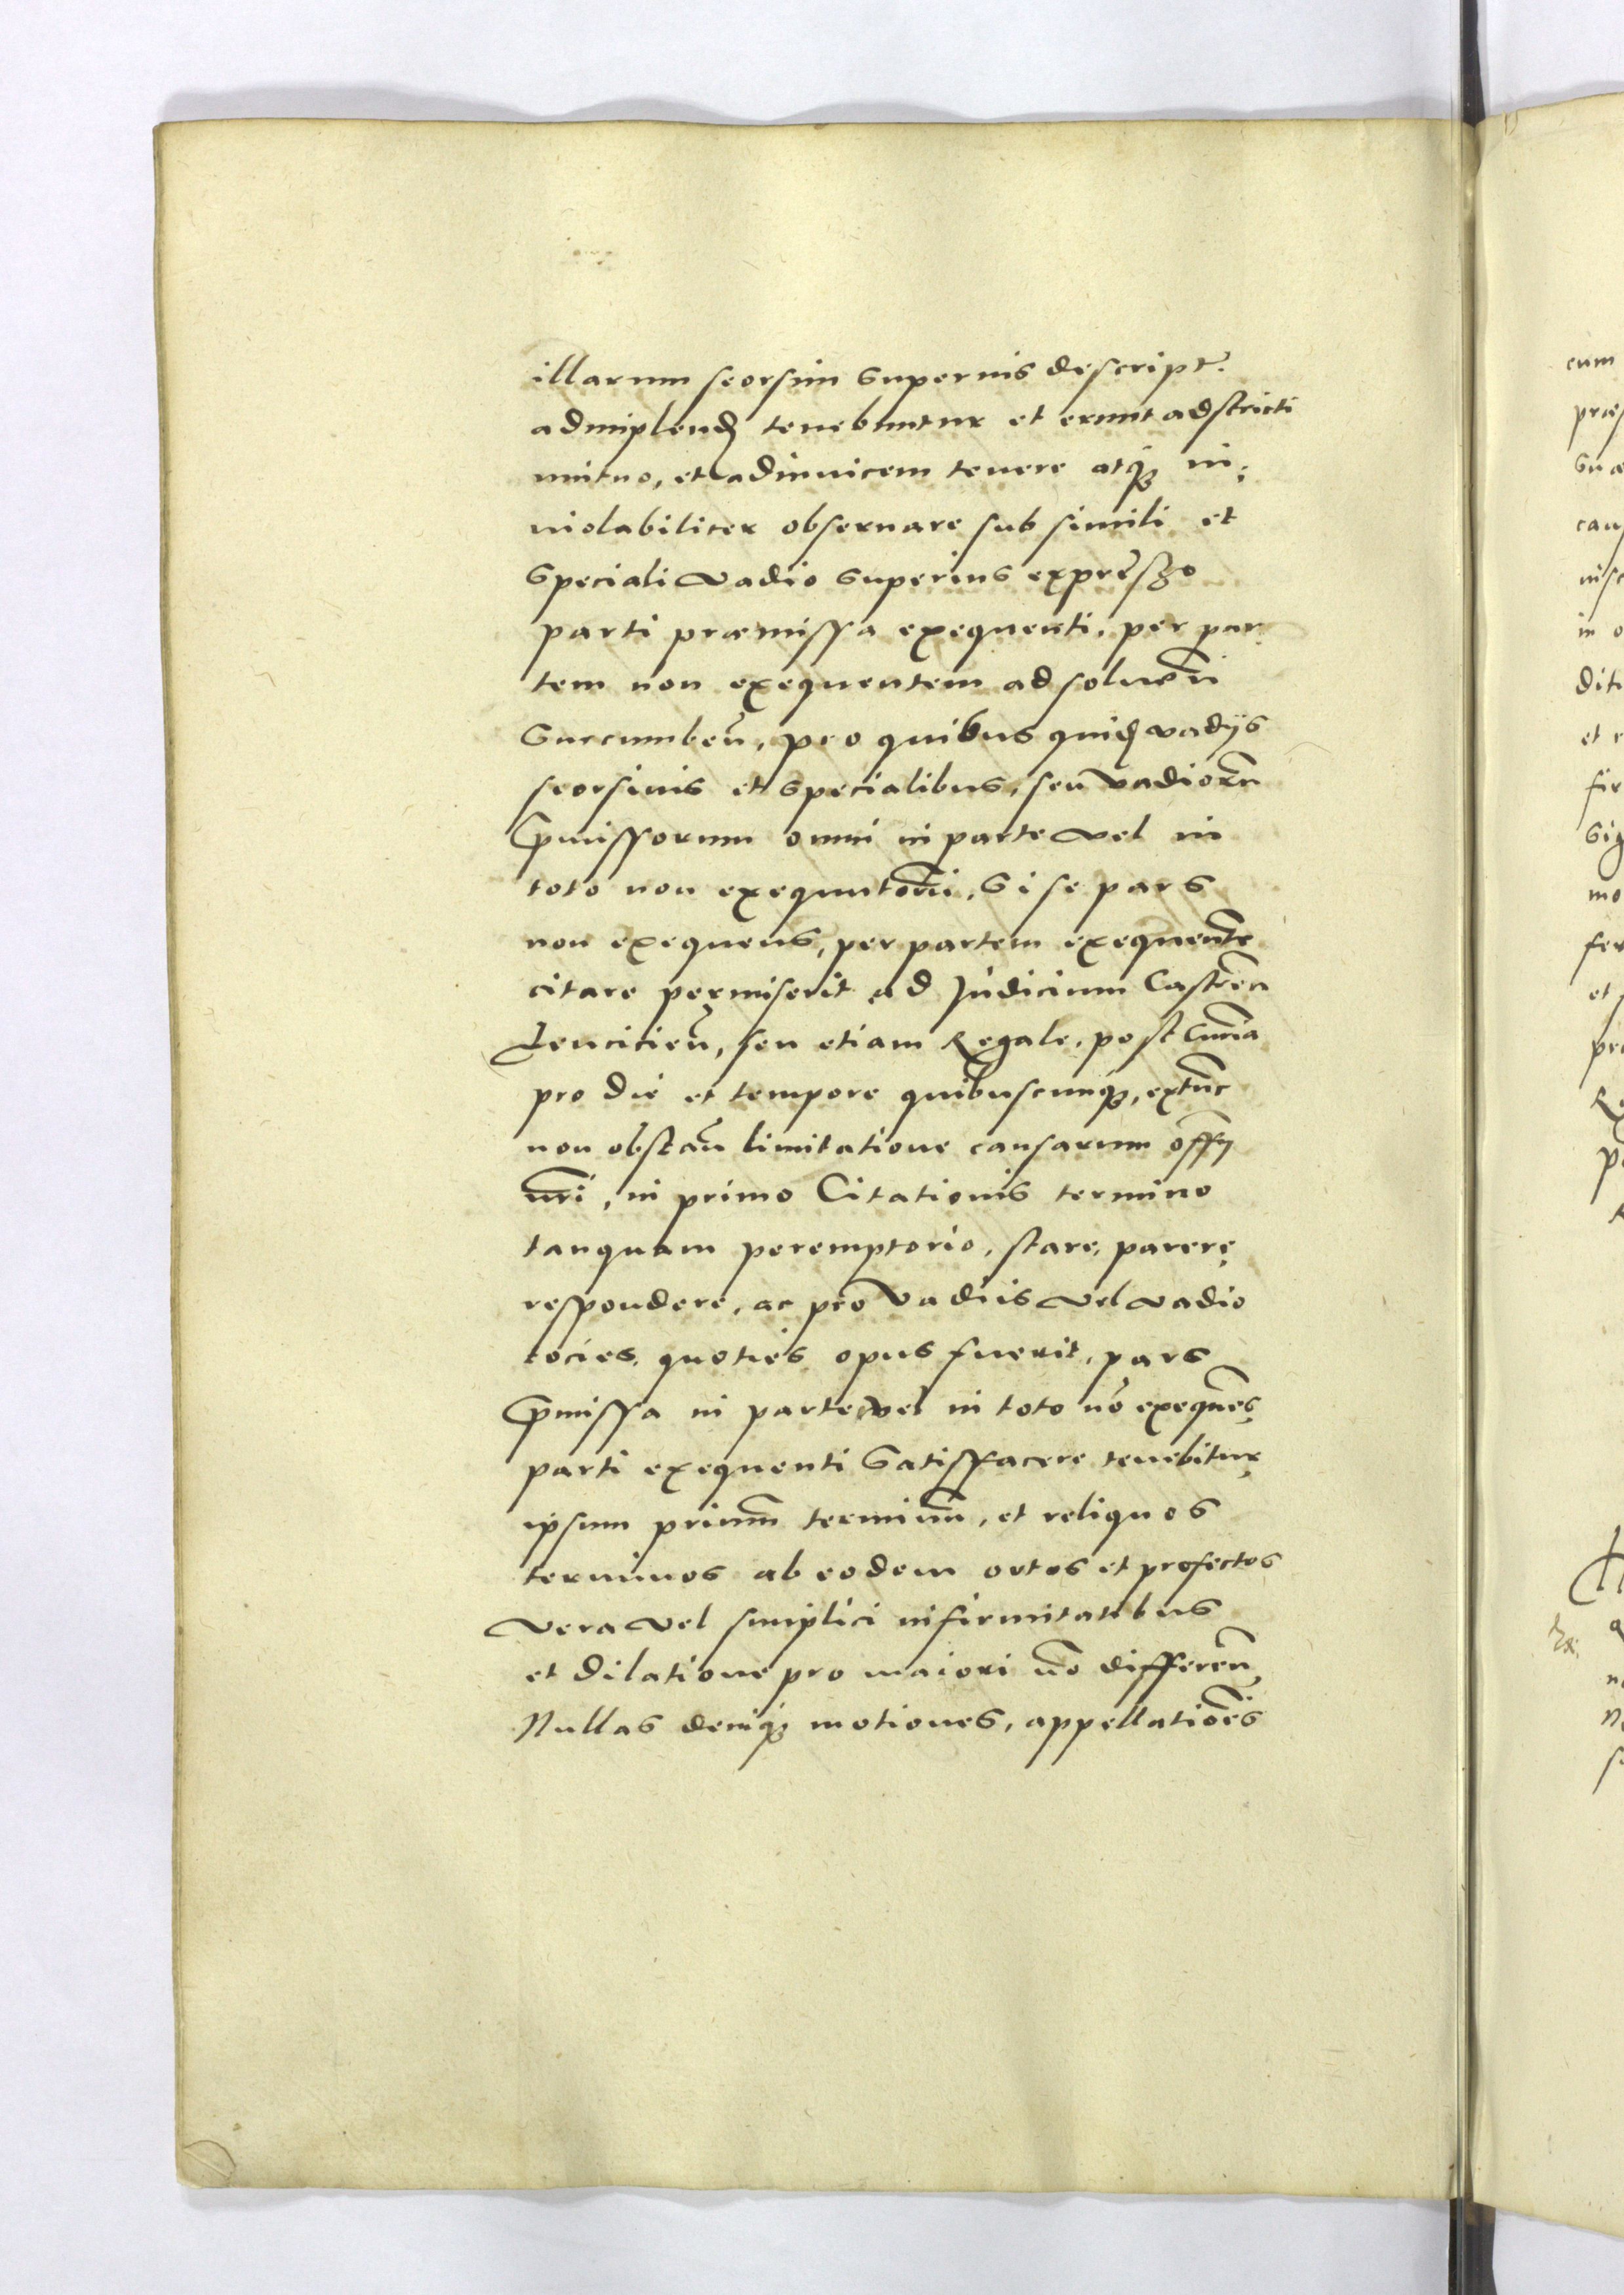 illarum seorsim superius descript.
adimplend tenebuntur et erunt adstricti
mutuo, et adinvicem tenere atq3 in:
violabiliter observare sub simili et
speciali vadio superius expreszo
parti præmissa exequenti, per par
tem non exequentem ad solvēn
succumbeñ, pro quibus quid vadijs
seorsivis et specialibus, seu vadiorū
p̄missorum omni in parte vel in
toto non exequutōni, si se pars
non exequens, per partem exequente
citare permiserit ad Judicium Castreñ
Lencicieñ, seu etiam Regale, post Cur̄ia
pro die et tempore quibuscunq3, extūc
non obstañ limitatione causarum offij
nr̄i, in primo Citationis termino
tanquam peremptorio, stare, parere
respondere, ac pro vadiis vel vadio
tocies, quoties opus fuerit, pars
p̄missa in parte vel in toto nō exequēs
parti exequenti satisffacere tenebitur
ipsum primum̄ terminum̄, et reliquos
terminos ab eodem ortos et profectos
vera vel simplici infirmitatibus
et dilatione pro maiori nō differeñ
Nullas deniq3 motiones, appellatiōes
cum
diti
et
fir
mo
fer
et
in